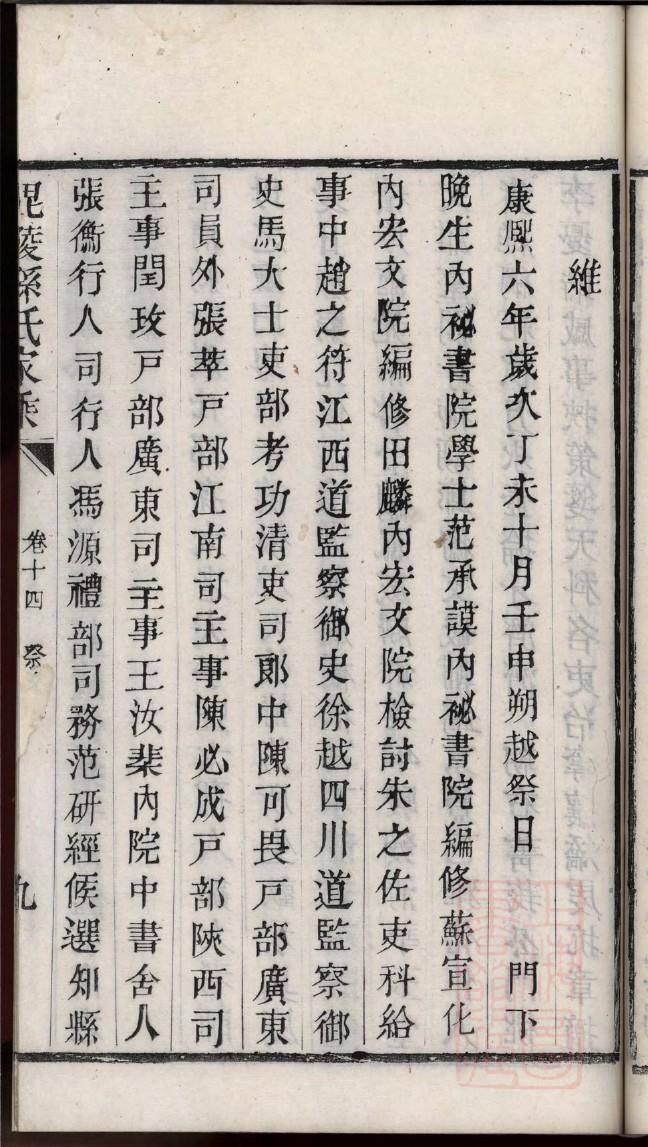 維
康熙六年歲次丁未十月壬申朔越祭日 門下
晚生內祕書院學士范承謨內祕書院編修蘇宣化
內宏文院編修田麟內宏文院檢討朱之佐吏科給
事中趙之符江西道監察御史徐越四川道監察御
史馬大士吏部考功清吏司郎中陳可畏戶部廣東
司員外張萃戶部江南司主事陳必成戶部陝西司
主事閏玫戶部廣東司主事王汝棐內院中書舍人
張衡行人司行人馮源禮部司務范研經候選知縣
毘陵孫氏家乘 卷十四 祭 九